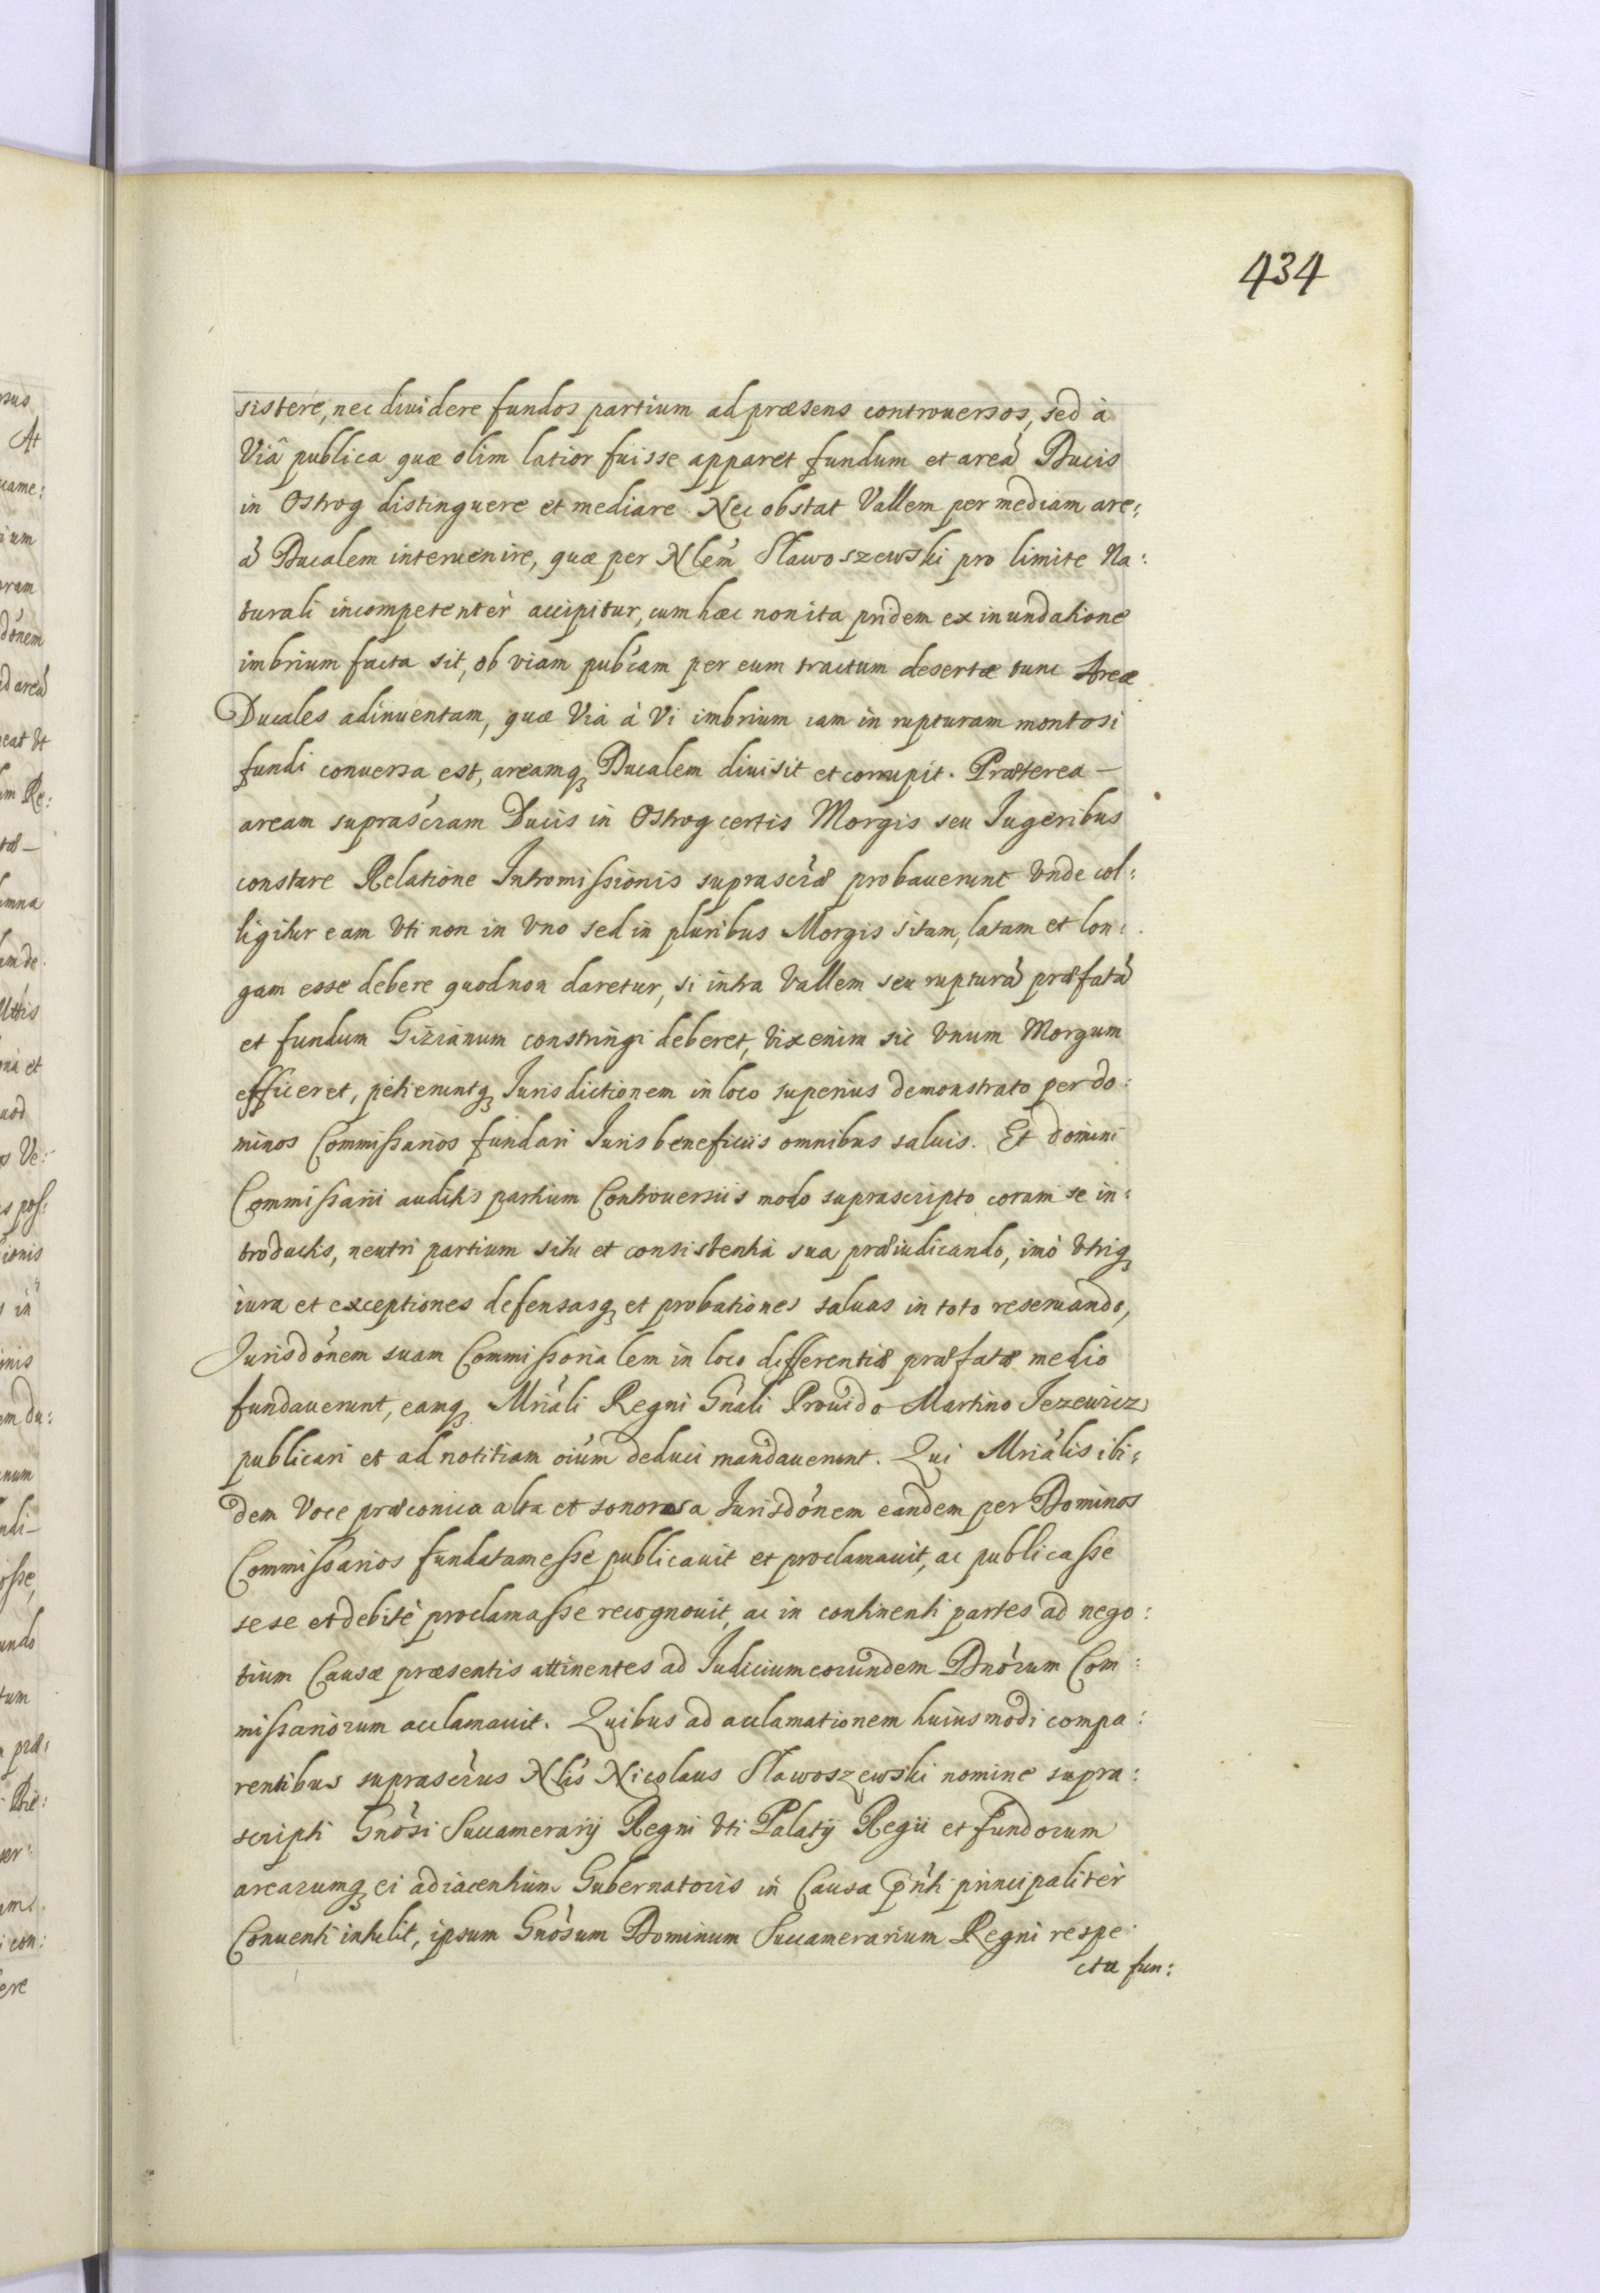 434
sistere, nec diuidere fundos partium ad præsens controuersos, sed à
Viâ publica quæ olim latior fuisse apparet fundum et areã Ducis
in Ostrog distinguere et mediare. Nec obstat Vallem per mediam are:
ã Ducalem interuenire, quæ per Nlem̃ Sławoszewski pro limite Na:
turali incompetentèr accipitur, cum hæc non ita pridem ex inundatione
imbrium facta sit, ob viam pubcam̃ per eum tractum desertæ tunc Areæ
Ducales adinuentam, quæ Via à Vi imbrium iam in rupturam montosi
fundi conuersa est, areamq Ducalem diuisit et corrupit. Præterea —
aream suprascr̃am Ducis in Ostrog certis Morgis seu Iugeribus
constare Relatione Intromissionis suprascr̃æ probauerunt Vnde col:
ligitur eam Vti non in Vno sed in pluribus Morgis sitam, latam et lon:
gam esse debere quod non daretur, si intra Vallem seu rupturã præfatã
et fundum Gizianum constringi deberet, Vix enim sic Vnum Morgum
efficeret, petieruntq Iurisdictionem in loco superius demonstrato per do:
minos Commissarios fundari Iuris beneficiis omnibus saluis. Et domini
Commissarii auditis partium Controuersiis modo suprascripto coram se in:
troductis, neutri partium situ et consistentia sua præiudicando, imò Vtriq
iura et exceptiones defensasq et probationes saluas in toto reseruando,
Jurisdõnem suam Commissorialem in loco differentiæ præfatæ medio
fundauerunt, eamq Mriãli Regni Gñali Prouido Martino Jezewicz
publicari et ad notitiam oĩum deduci mandauerunt. Qui Mriãlis ibi:
dem Voce præconica alta et sonorosa Iurisdõnem eandem per Dominos
Commissarios fundatam esse publicauit et proclamauit, ac publicasse
sese et debitè proclamasse recognouit, ac in continenti partes ad nego:
tium Causæ præsentis attinentes ad Iudicium eorundem Dnõrum Com:
missariorum acclamauit. Quibus ad acclamationem huiusmodi compa:
rentibus suprascr̃us Nlis̃ Nicolaus Sławoszewski nomine supra:
scripti Gnõsi Succamerarij Regni Vti Palatij Regii et fundorum
arearumq ei adiacentium Gubernatoris in Causa p̃nti principalitèr
Conuenti intulit, ipsum Gnõsum Dominum Succamerarium Regni respe
ctu fun: